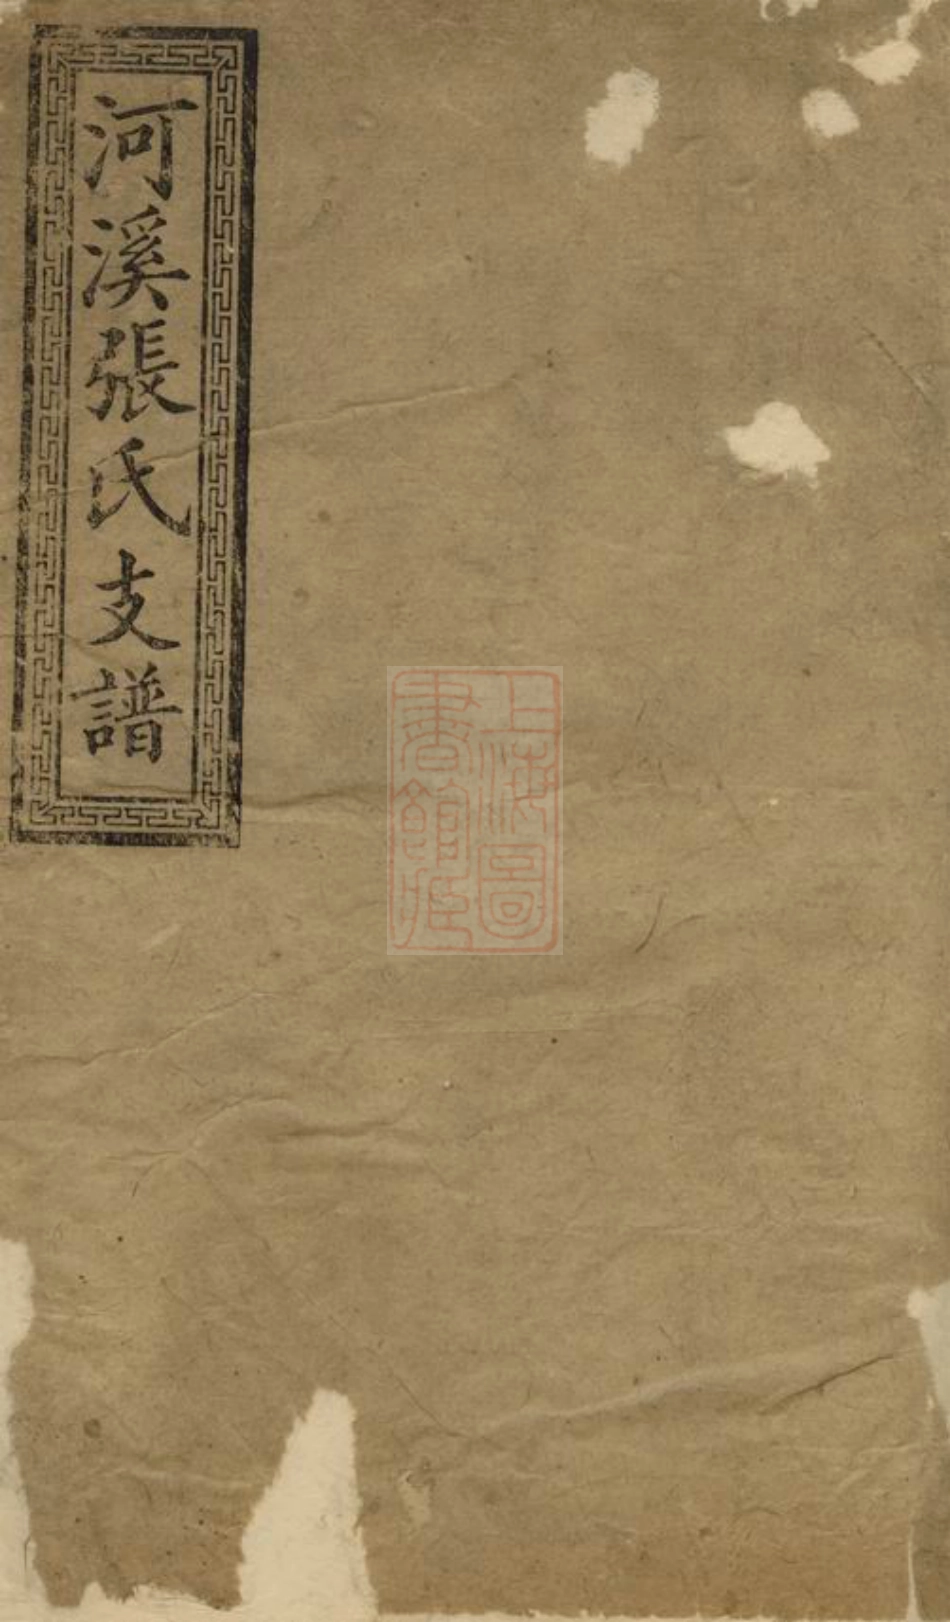 河溪張氏支譜
上海圖
書館藏